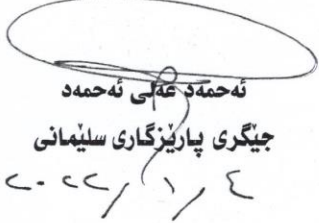 ئەحمەد عەلی ئەحمەد
جێگری پارێزگاری سلێمانی
٢٠٢٢/١/٤